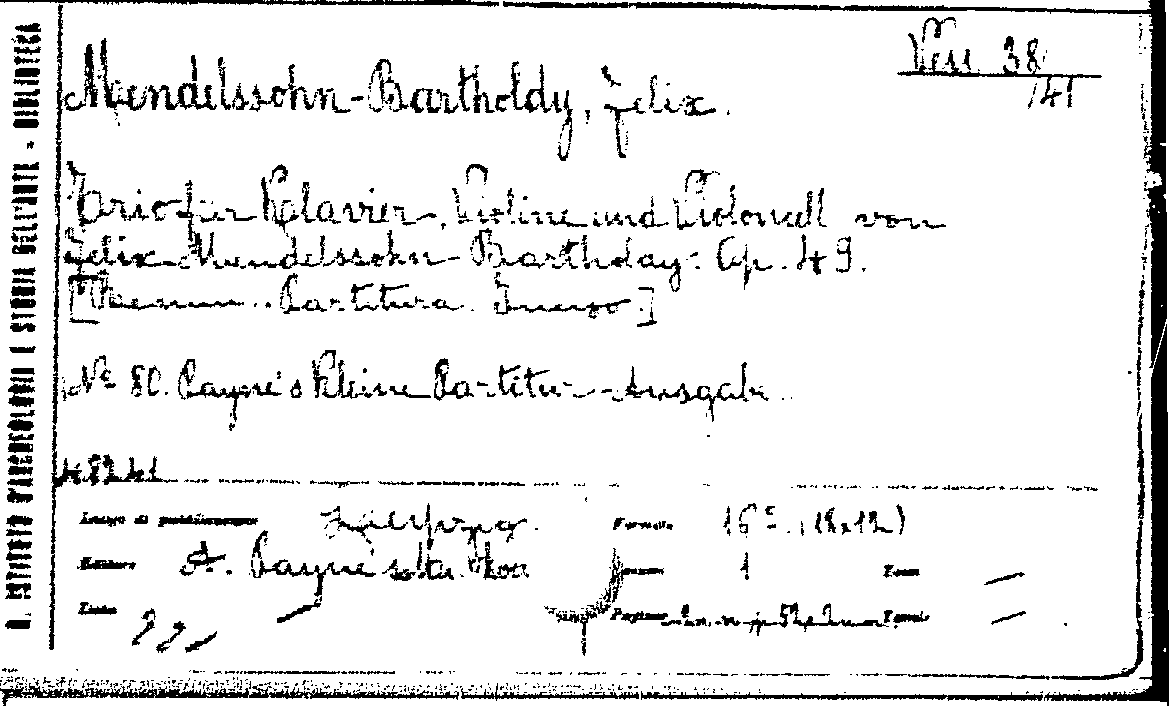 R. ISTITUTO D'ARCHEOLOGIA E STORIA DELL'ARTE - BIBLIOTECA
Vess. 38
/41
Mendelssohn-Bartholdy, Felix.
Trio für Klavier, Violine und Violoncell von
Felix Mendelssohn-Bartholdy. Op. 49.
[ Partitura. ]
N° 80. Payne's Kleine Partitur-Ausgabe
48241
Luogo di pubblicazione Leipzig. Formato 16° (18x12)
Editore A. Payne's 1 Tomi —
Data Pagine Tavole —